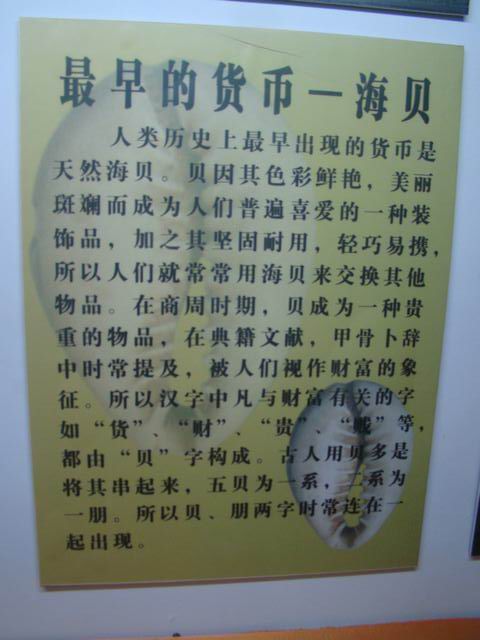 最早的货币－海贝
人类历史上最早出现的货币是
天然海贝。贝因其色彩鲜艳，美丽
斑斓而成为人们普遍喜爱的一种装
饰品，加之其坚固耐用，轻巧易携，
所以人们就常常用海贝来交换其他
物品。在商周时期，贝成为一种贵
重的物品，在典籍文献，甲骨卜辞
中时常提及，被人们视作财富的象
征。所以汉字中凡与财富有关的字
如“货”、“财”、“贵”、“贱”等，
都由“贝”字构成。古人用贝多是
将其串起来，五贝为一系，二系为
一朋。所以贝、朋两字时常连在一
起出现。